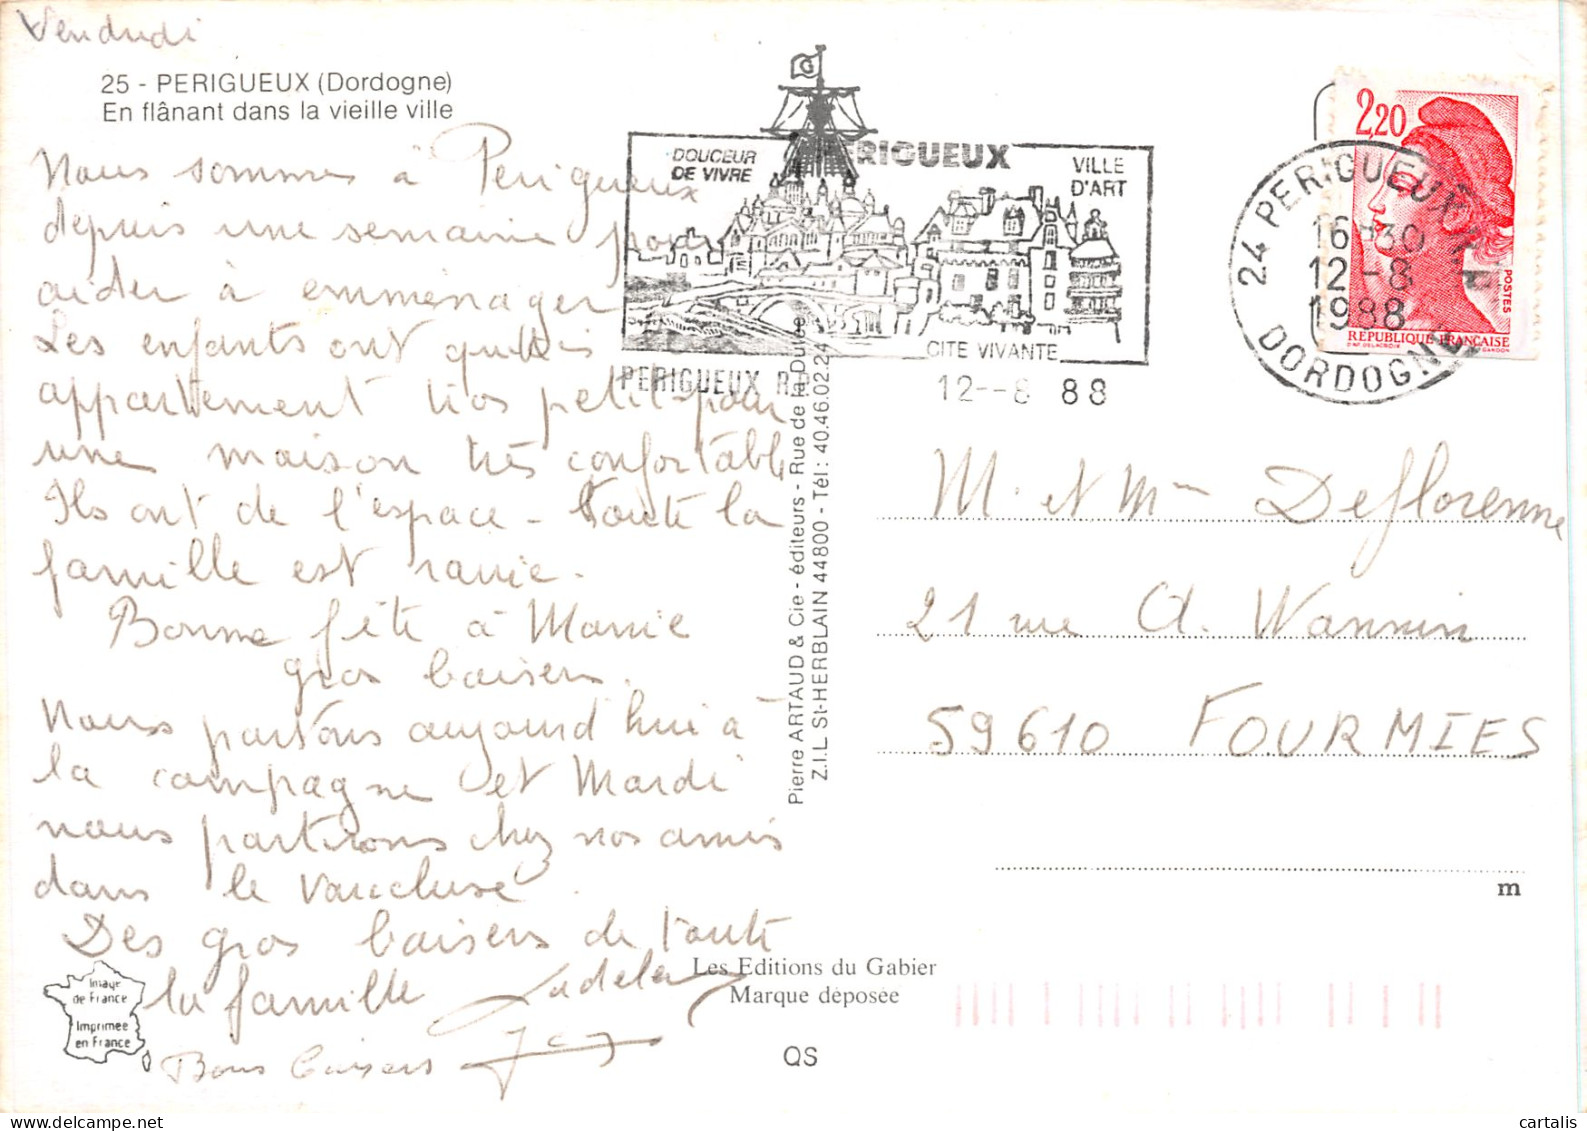 Vendredi
25 - PERIGUEUX (Dordogne)
En flânant dans la vieille ville
Nous sommes à Périgueux
depuis une semaine pour
aider à emménager
Les enfants ont quittés
appartement très petit pour
une maison très confortable
Ils ont de l'espace - Toute la
famille est ravie.
Bonne fête à Marie
gros baisers.
Nous partons aujourd'hui à
la campagne et Mardi
nous partirons chez nos amis
dans le Vaucluse.
Des gros baisers de toute
la famille
Bons baisers
Image
de France
Imprimée
en France
DOUCEUR
DE VIVRE
PERIGUEUX
VILLE
D'ART
CITE VIVANTE
PERIGUEUX R.P.
12--8 88
2,20
POSTES
REPUBLIQUE FRANÇAISE
D'AP. DELACROIX
GANDON
24 PERIGUEUX R.P.
16H30
12-8
1988
DORDOGNE
Pierre ARTAUD & Cie - éditeurs - Rue de la Dutée
Z.I.L St-HERBLAIN 44800 - Tél: 40.46.02.24
M. et Mme Deflorenne
21 rue A. Wannin
59610 FOURMIES
m
Les Editions du Gabier
Marque déposée
QS
cartalis